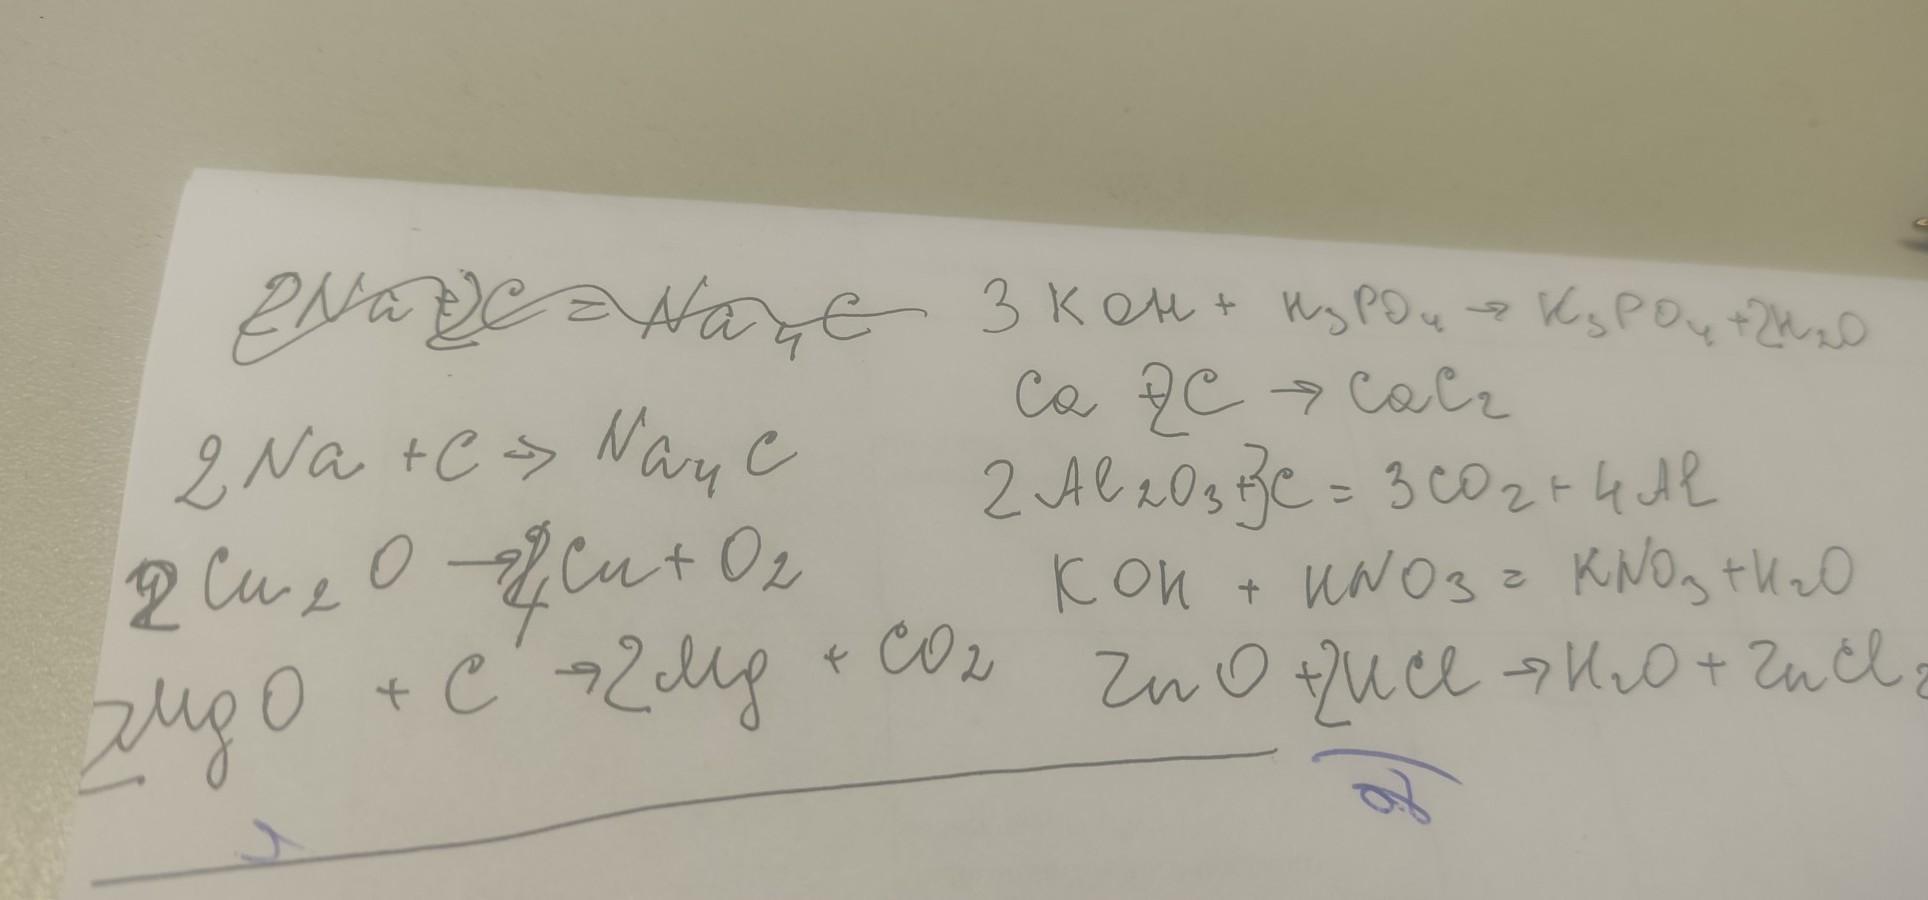 2Na + 2C = Na4C
2Na + C → Na4C
2Cu2O → 4Cu + O2
2MgO + C → 2Mg + CO2
3KOH + H3PO4 → K3PO4 + 2H2O
Ca + 2C → CaC2
2Al2O3 + 3C = 3CO2 + 4Al
KOH + HNO3 = KNO3 + H2O
ZnO + 2HCl → H2O + ZnCl2